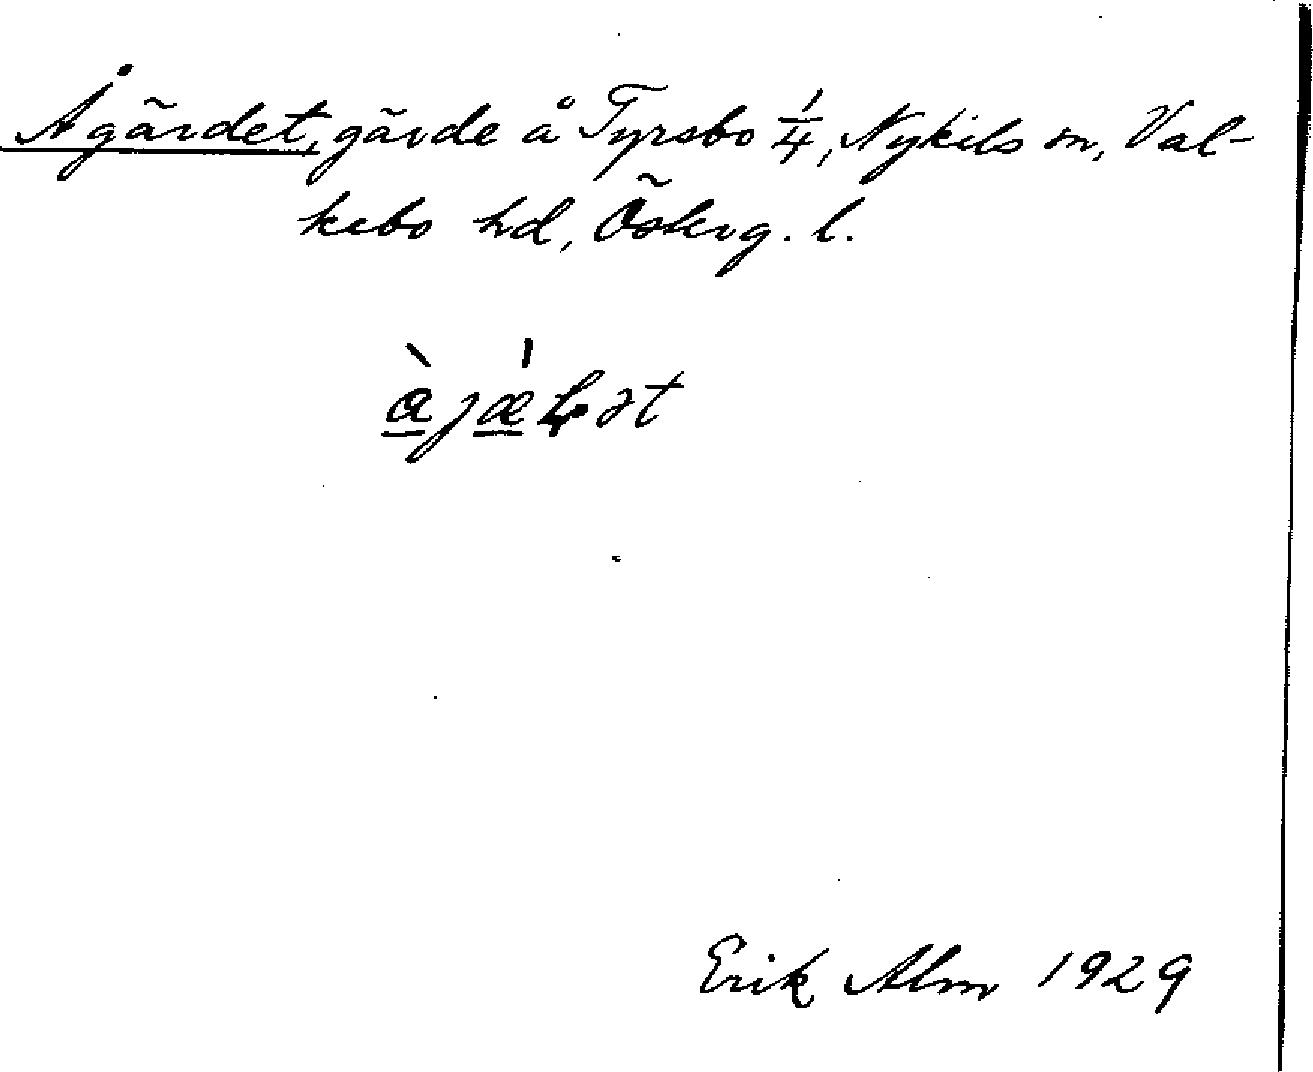 Ågärdet, gärde å Tyrsbo 1/4, Nykils sn, Val-
kebo hd, Österg. l.
Erik Alm 1929